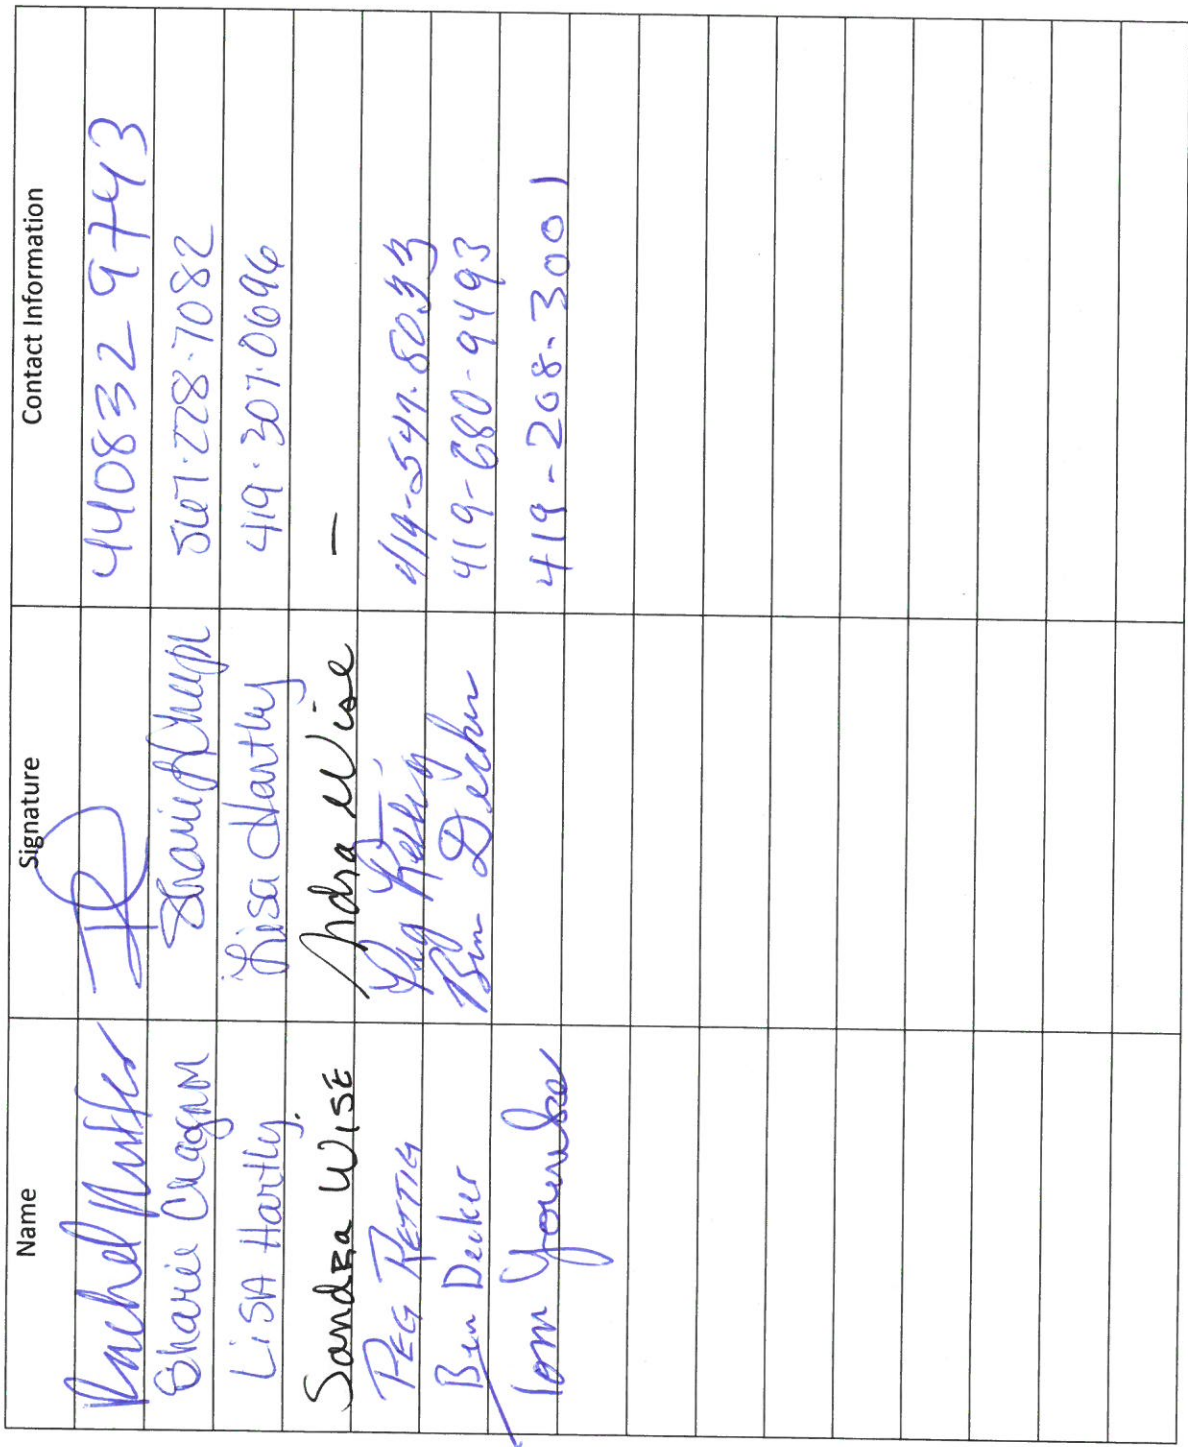 Name Signature Contact Information
Rachel 440832 9743
Sharie 567.228.7082
LiSA Hartly. Lisa Hartley 419.307.0696
Sandra WISE Wise —
PEG RETTIG Peg Rettig 419-547.8033
Ben Decker Ben Decker 419-680-9493
Tom 419-208-3001